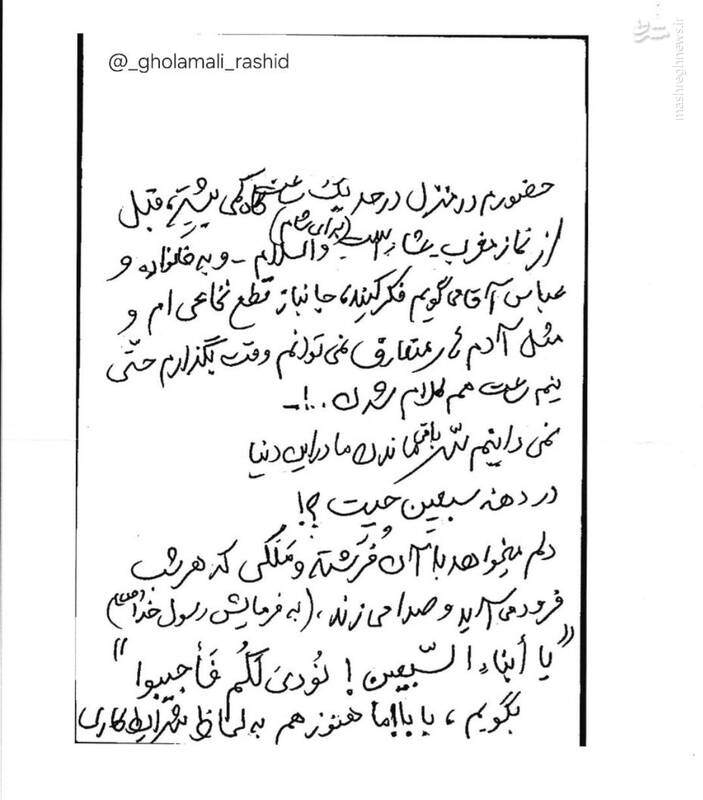 @_gholamali_rashid
مشرق
mashreghnews.ir
حضورم در منزل در حد یک ساعت گاه کمی بیشتر، قبل
از نماز مغرب عشاء است (برای شام) والسلام - و به خانواده و
عباس آقا می‌گویم فکر کنید، جانباز قطع نخاعی ام و
مثل آدم های متعارف نمی توانم وقت بگذارم حتّی
نیم ساعت هم کلام شدن ...!
نمی دانیم سّر باقیماندن ما در این دنیا
در دهنه سبعین چیست ؟!
دلم میخواهد به آن فُرشته و مَلَکی که هر شب
فرود می آید و صدا می زند، (به فرمایش رسول خدا (ص))
"یا أبناء السّبعین ! نُودیَ لَکُم فَأجیبوا"
بگویم، بابا! ما هنوز هم به لحاظ شرایط کاری